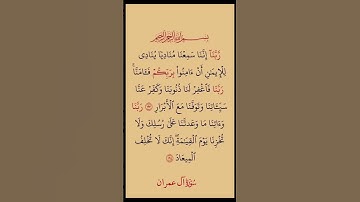 بسم الله الرحمن الرحيم
رَّبَّنَآ إِنَّنَا سَمِعْنَا مُنَادِيًا يُنَادِى
لِلْإِيمَٰنِ أَنْ ءَامِنُوا۟ بِرَبِّكُمْ فَـَٔامَنَّا ۚ
رَبَّنَا فَٱغْفِرْ لَنَا ذُنُوبَنَا وَكَفِّرْ عَنَّا
سَيِّـَٔاتِنَا وَتَوَفَّنَا مَعَ ٱلْأَبْرَارِ ۝ رَبَّنَا
وَءَاتِنَا مَا وَعَدتَّنَا عَلَىٰ رُسُلِكَ وَلَا
تُخْزِنَا يَوْمَ ٱلْقِيَٰمَةِ ۗ إِنَّكَ لَا تُخْلِفُ
ٱلْمِيعَادَ ۝
سُورَةُ آل عمران